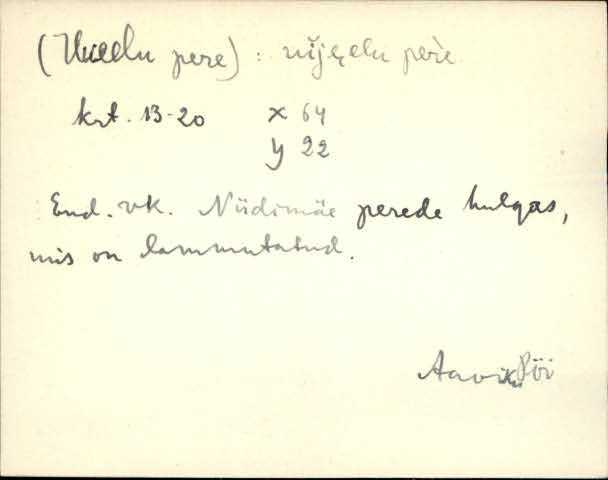 ( pere) : pere
krt. 13-20 x 64
y 22
End. vk. Niidimäe perede hulgas,
mis on lammutatud.
Aavik Pöi